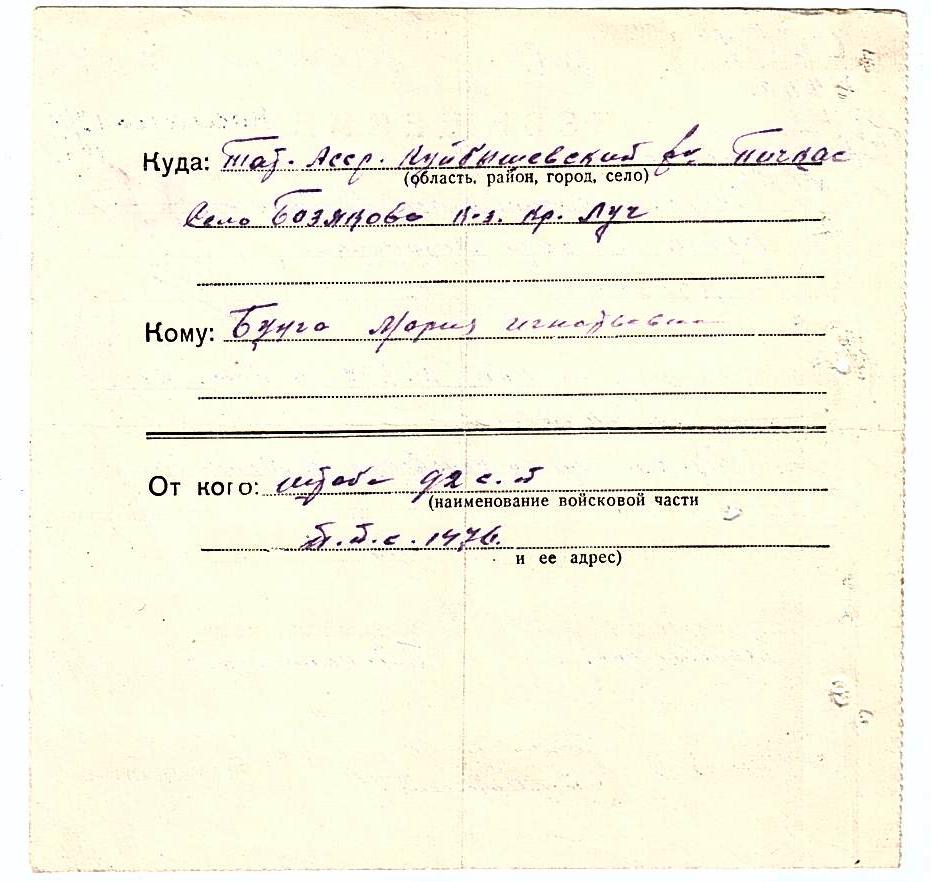 Куда: Тат. Асср. Куйбышевский Пичкас
(область, район, город, село)
Село Базяково К-з. Кр. Луч
Кому: Мария Игнатьевна
От кого: штаба 92 с. п
(наименование войсковой части
П.П.с. 1476.
и ее адрес)